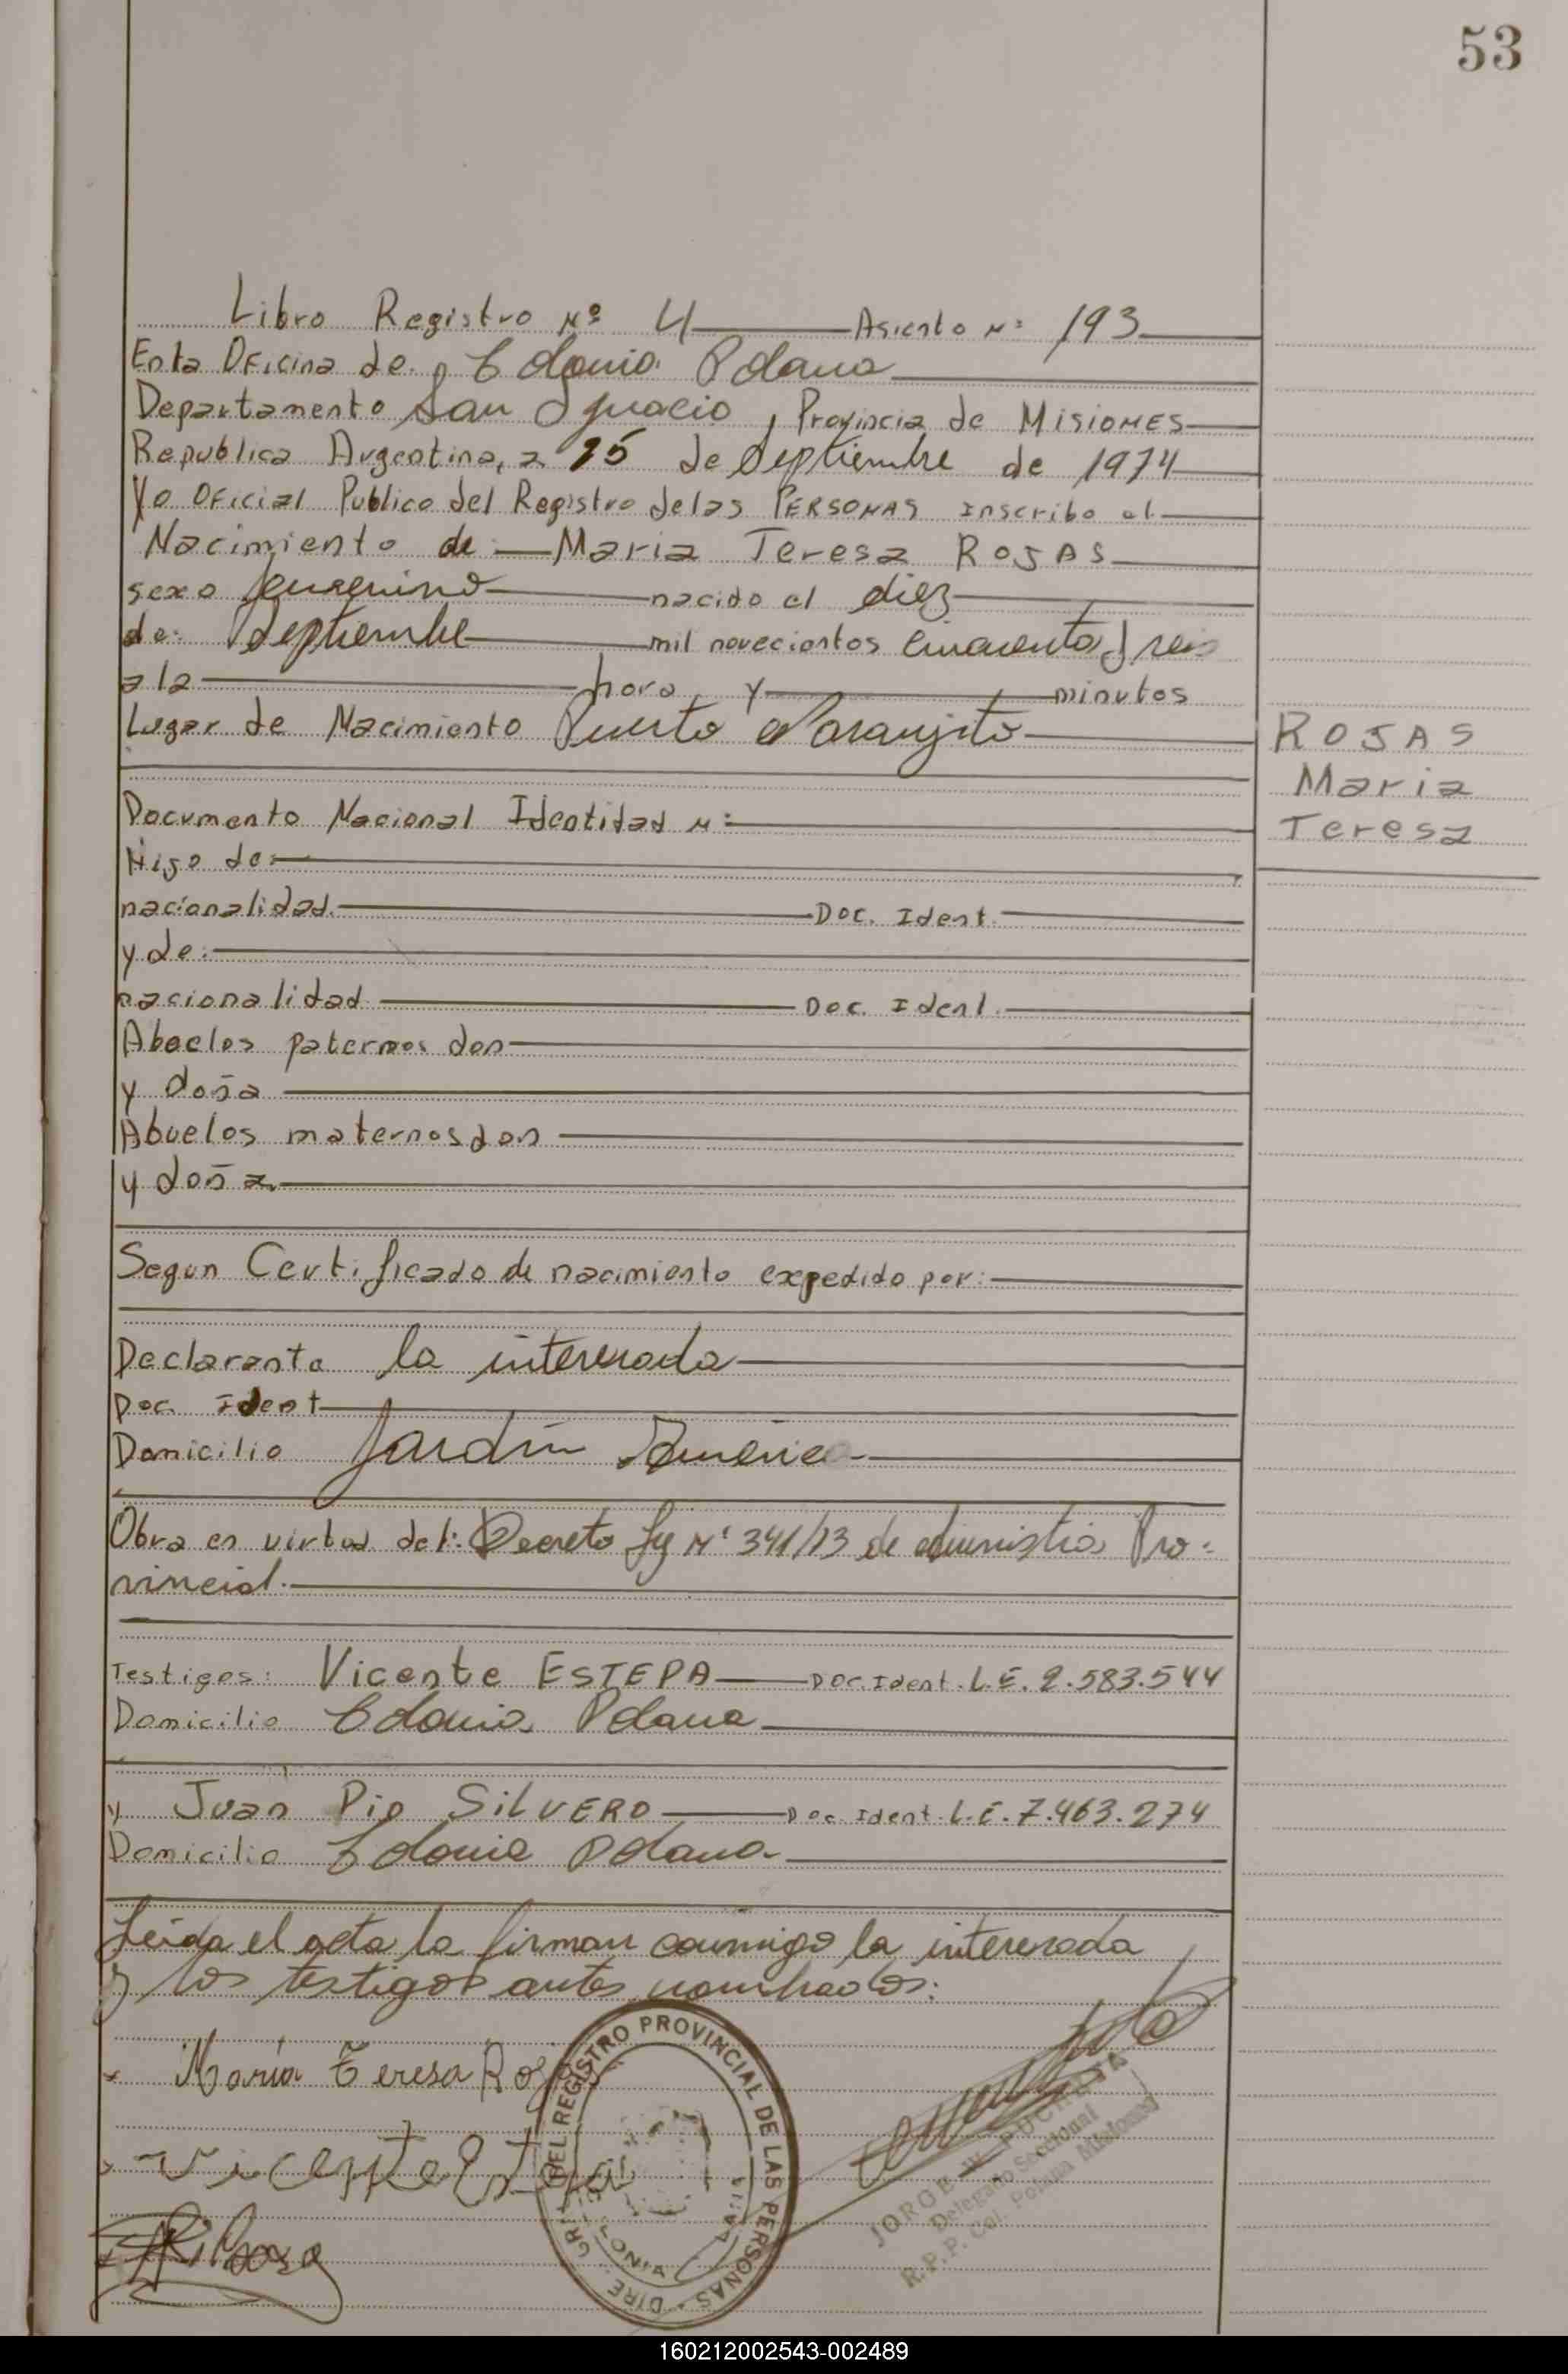 53
Libro Registro Nº 4 Asiento Nº 193
En ta Oficina de Colonia Polana
Departamento San Ignacio, Provincia de MISIONES
Republica Argentina, a 25 de Septiembre de 1974
Yo Oficial Publico del Registro de las PERSONAS inscribo el
Nacimiento de Maria Teresa ROJAS
sexo femenino nacido el diez
de: Septiembre mil novecientos cincuenta y seis
a la hora y minutos
Lugar de Nacimiento Puerto Naranjito
ROJAS
Maria
Teresa
Documento Nacional Identidad Nº
Hijo de:
nacionalidad. Doc. Ident.
y de:
nacionalidad Doc. Ident.
Abuelos paternos don
y doña
Abuelos maternos don
y doña
Segun Certificado de nacimiento expedido por:
Declarante la interesada
Doc. Ident
Domicilio Jardín América
Obra en virtud del: Decreto Ley Nº 341/73 de amnistia Pro-
vincial.
Testigos: Vicente ESTEPA Doc. Ident. L.E. 2.583.544
Domicilio Colonia Polana
y Juan Pio SILVERO Doc. Ident. L.E. 7.463.274
Domicilio Colonia Polana
Leida el acta la firman conmigo la interesada
y los testigos antes nombrados:
María Teresa Rojas
Vicente Estepa
DIRE. GRAL. DEL REGISTRO PROVINCIAL DE LAS PERSONAS
JORGE W. PUCHETA
Delegado Seccional
R.P.P. Col. Polana Misiones
160212002543-002489